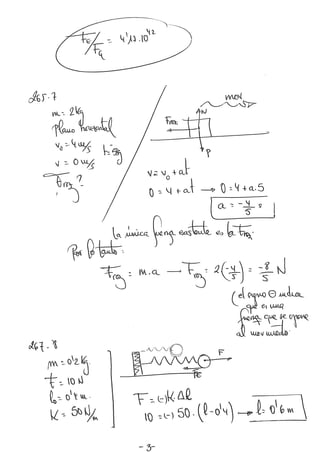 Fe/Fg = 4'12·10^42
265.7
m = 2Kg
Plano horizontal
v₀ = 4 m/s
t = 5s
v = 0 m/s
Froz?
mov
N
Froz
P
v = v₀ + at
0 = 4 + at → 0 = 4 + a.5
a = -4/5 =
La única fuerza existente es la Froz.
Por lo tanto:
Froz = m.a → Froz = 2(-4/5) = -8/5 N
(el signo ⊖ indica
que es una
fuerza que se opone
al movimiento
267.8
m = 0'2 Kg
F = 10 N
l₀ = 0'4 m.
K = 50 N/m
F
Fe
F = (-)K Δl
10 = (-) 50. (l - 0'4) → l = 0'6 m
-3-